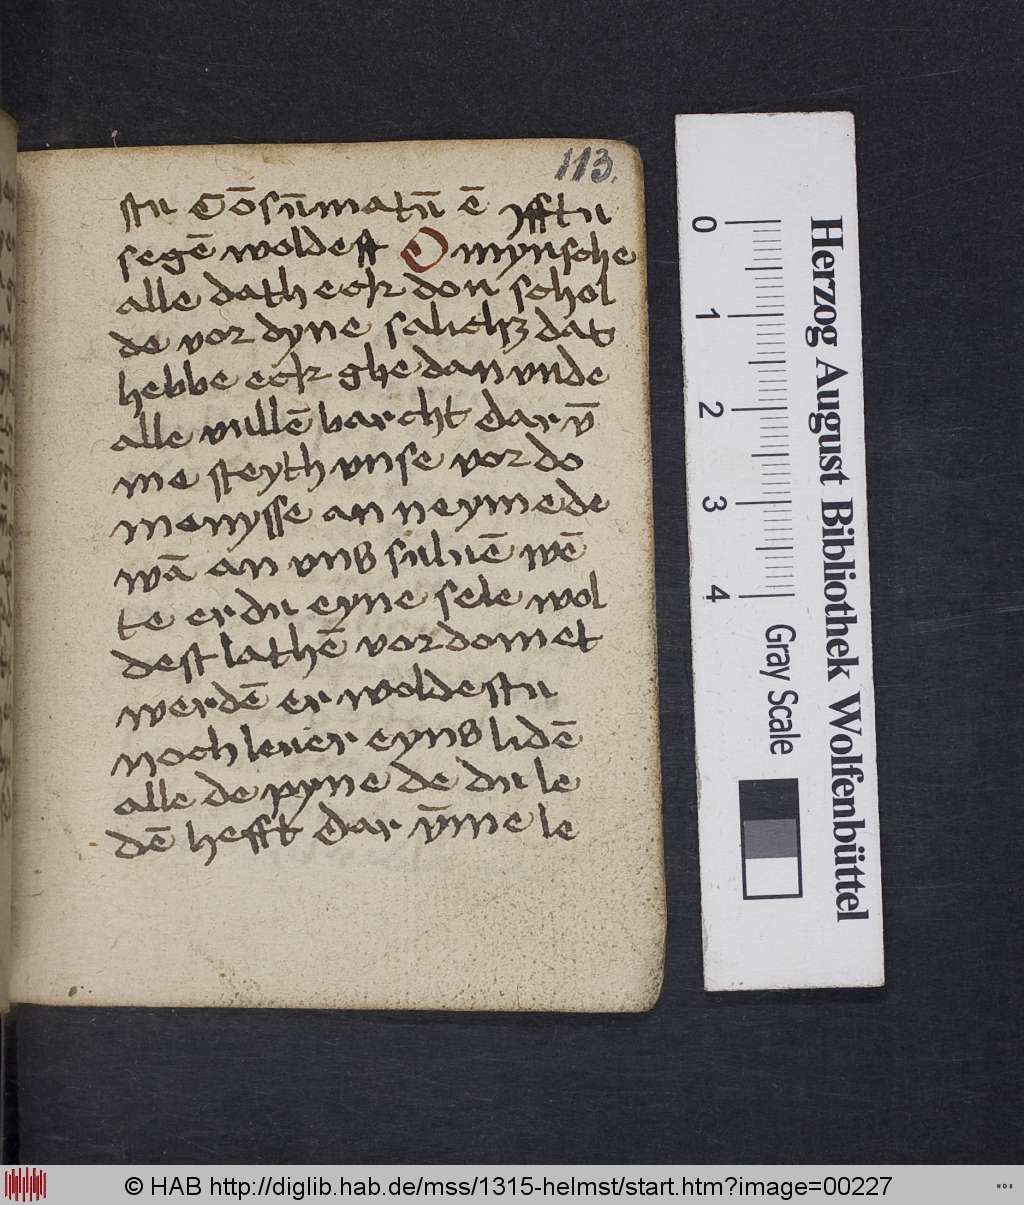 113.
stu Cōsūmatū ē yfftu
segē woldest O mynsche
alle dath eck don schol
de vor dyne salichz dat
hebbe eck ghe dan vnde
alle vullē barcht dar v̄
me steyth vnse vor do
menysse an neymede
wā an vns suluē wē
te er du eyne sele wol
dest lathē vor domet
werdē er woldestu
noch leuer eyns lidē
alle de pyne de du le
dē hefft dar v̄me le
0 1 2 3 4
Gray Scale
Herzog August Bibliothek Wolfenbüttel
© HAB http://diglib.hab.de/mss/1315-helmst/start.htm?image=00227